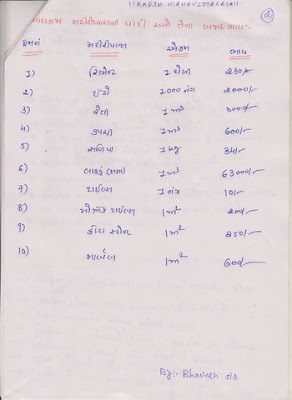 "AADESH MAHAVIDYALAYA"
બાંધકામ મટીરીયલની યાદી અને તેના બજાર ભાવ:- ②
ક્રમનં મટીરીયલ એકમ ભાવ
1) સિમેન્ટ 1 થેલી 230/-
2) ઈંટો 1000 નંગ 2000/-
3) રેતી 1 m³ 300/-
4) કપચી 1 m³ 600/-
5) સળિયા 1 kg 34/-
6) લાકડું (સાગ) 1 m³ 63000/-
7) ટાઈલ્સ 1 નંગ 10/-
8) મોઝેક ટાઈલ્સ 1 m² 200/-
9) કોટા સ્ટોન 1 m² 250/-
10) માર્બલ 1 m² 600/-
By:- Bhavesh